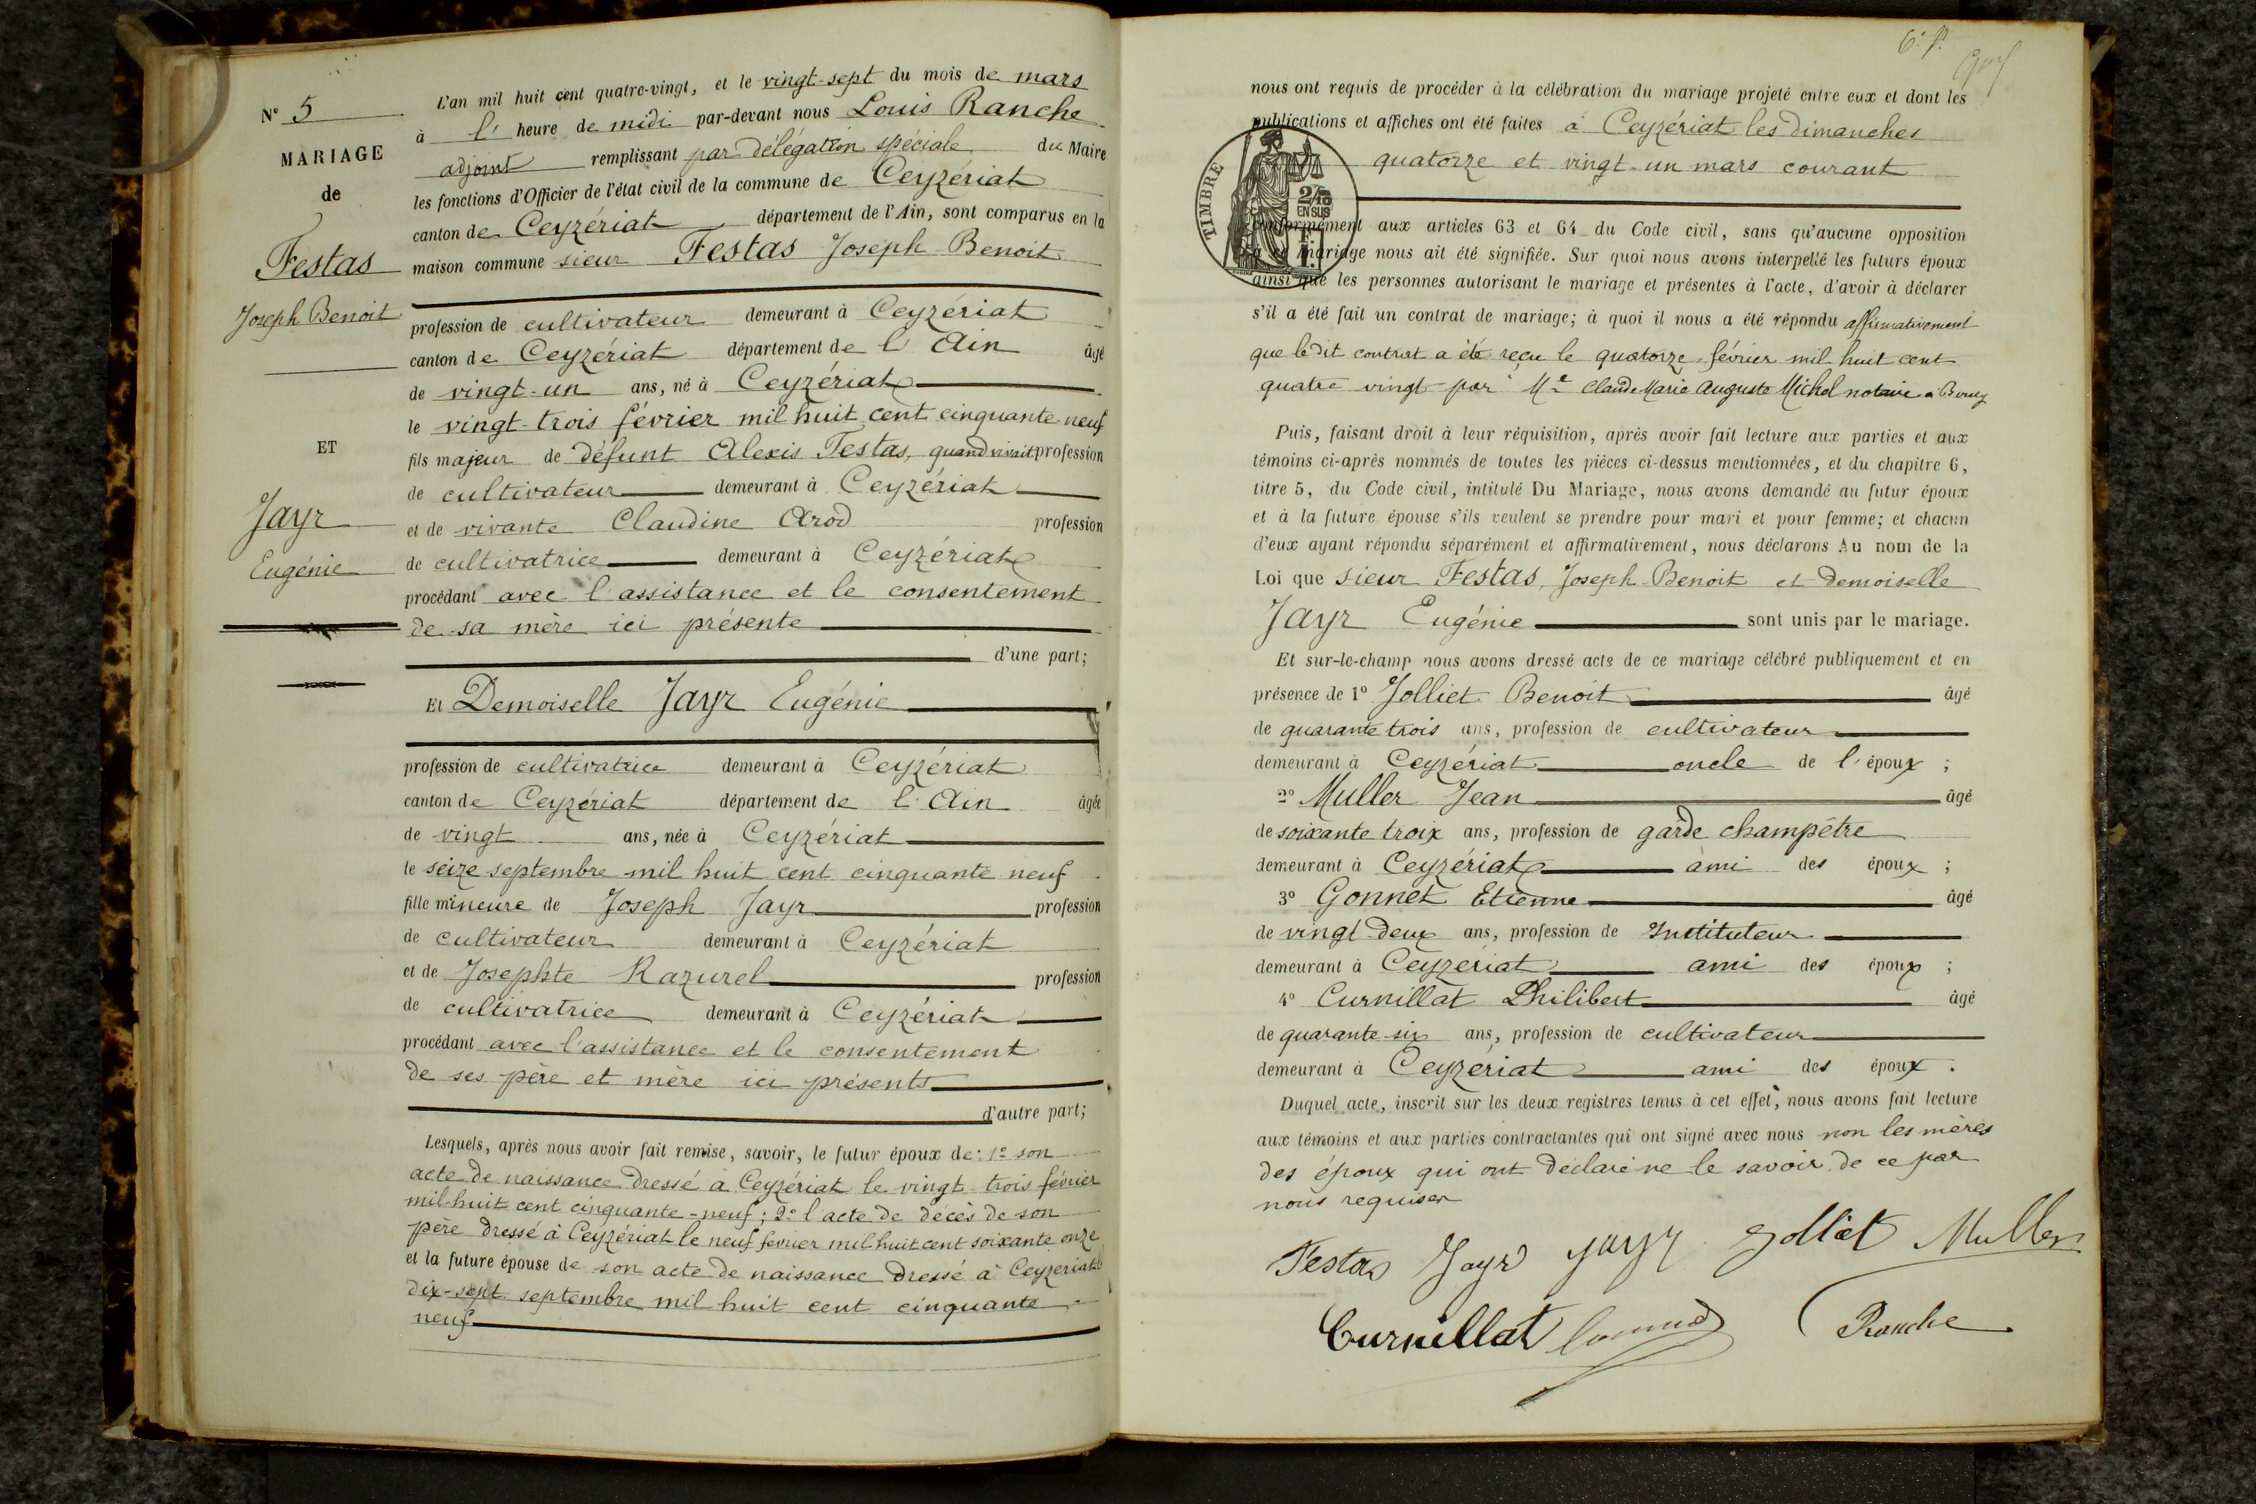 N° 5
MARIAGE
de
Festas
Joseph Benoit
ET
Jayr
Eugénie
L'an mil huit cent quatre-vingt, et le vingt-sept du mois de mars
à l' heure de midi par-devant nous Louis Ranche
adjoint remplissant par délégation spéciale du Maire
les fonctions d'Officier de l'état civil de la commune de Ceyzériat
canton de Ceyzériat département de l'Ain, sont comparus en la
maison commune sieur Festas Joseph Benoit
profession de cultivateur demeurant à Ceyzériat
canton de Ceyzériat département de l'Ain âgé
de vingt-un ans, né à Ceyzériat
le vingt-trois février mil huit cent cinquante-neuf
fils majeur de défunt Alexis Festas, quand vivait profession
de cultivateur demeurant à Ceyzériat
et de vivante Claudine Arod profession
de cultivatrice demeurant à Ceyzériat
procédant avec l'assistance et le consentement
de sa mère ici présente
d'une part;
Et Demoiselle Jayr Eugénie
profession de cultivatrice demeurant à Ceyzériat
canton de Ceyzériat département de l'Ain âgée
de vingt ans, née à Ceyzériat
le seize septembre mil huit cent cinquante neuf
fille mineure de Joseph Jayr profession
de cultivateur demeurant à Ceyzériat
et de Josephte Razurel profession
de cultivatrice demeurant à Ceyzériat
procédant avec l'assistance et le consentement
de ses père et mère ici présents
d'autre part;
Lesquels, après nous avoir fait remise, savoir, le futur époux de: 1° son
acte de naissance dressé à Ceyzériat le vingt-trois février
mil-huit cent cinquante-neuf; 2° l'acte de décès de son
père dressé à Ceyzériat le neuf février mil huit cent soixante onze
et la future épouse de son acte de naissance dressé à Ceyzériat
dix-sept septembre mil huit cent cinquante
neuf
6° f.
nous ont requis de procéder à la célébration du mariage projeté entre eux et dont les
publications et affiches ont été faites à Ceyzériat les dimanches
quatorze et vingt-un mars courant
TIMBRE
2/10
EN SUS
conformément aux articles 63 et 64 du Code civil, sans qu'aucune opposition
à ce mariage nous ait été signifiée. Sur quoi nous avons interpellé les futurs époux
ainsi que les personnes autorisant le mariage et présentes à l'acte, d'avoir à déclarer
s'il a été fait un contrat de mariage; à quoi il nous a été répondu affirmativement
que ledit contrat a été reçu le quatorze février mil huit cent
quatre vingt par Me Claude Marie Auguste Michel notaire à Bourg
Puis, faisant droit à leur réquisition, après avoir fait lecture aux parties et aux
témoins ci-après nommés de toutes les pièces ci-dessus mentionnées, et du chapitre 6,
titre 5, du Code civil, intitulé Du Mariage, nous avons demandé au futur époux
et à la future épouse s'ils veulent se prendre pour mari et pour femme; et chacun
d'eux ayant répondu séparément et affirmativement, nous déclarons Au nom de la
Loi que sieur Festas, Joseph-Benoit et demoiselle
Jayr Eugénie sont unis par le mariage.
Et sur-le-champ nous avons dressé acte de ce mariage célébré publiquement et en
présence de 1° Jolliet Benoit âgé
de quarante trois ans, profession de cultivateur
demeurant à Ceyzériat oncle de l'époux ;
2° Muller Jean âgé
de soixante troix ans, profession de garde champêtre
demeurant à Ceyzériat ami des époux ;
3° Gonnet Etienne âgé
de vingt-deux ans, profession de Instituteur
demeurant à Ceyzériat ami des époux ;
4° Curnillat Philibert âgé
de quarante-six ans, profession de cultivateur
demeurant à Ceyzériat ami des époux .
Duquel acte, inscrit sur les deux registres tenus à cet effet, nous avons fait lecture
aux témoins et aux parties contractantes qui ont signé avec nous non les mères
des époux qui ont déclaré ne le savoir de ce par
nous requises
Festas Jayr Jayr Jolliet Muller
Curnillat Ranche